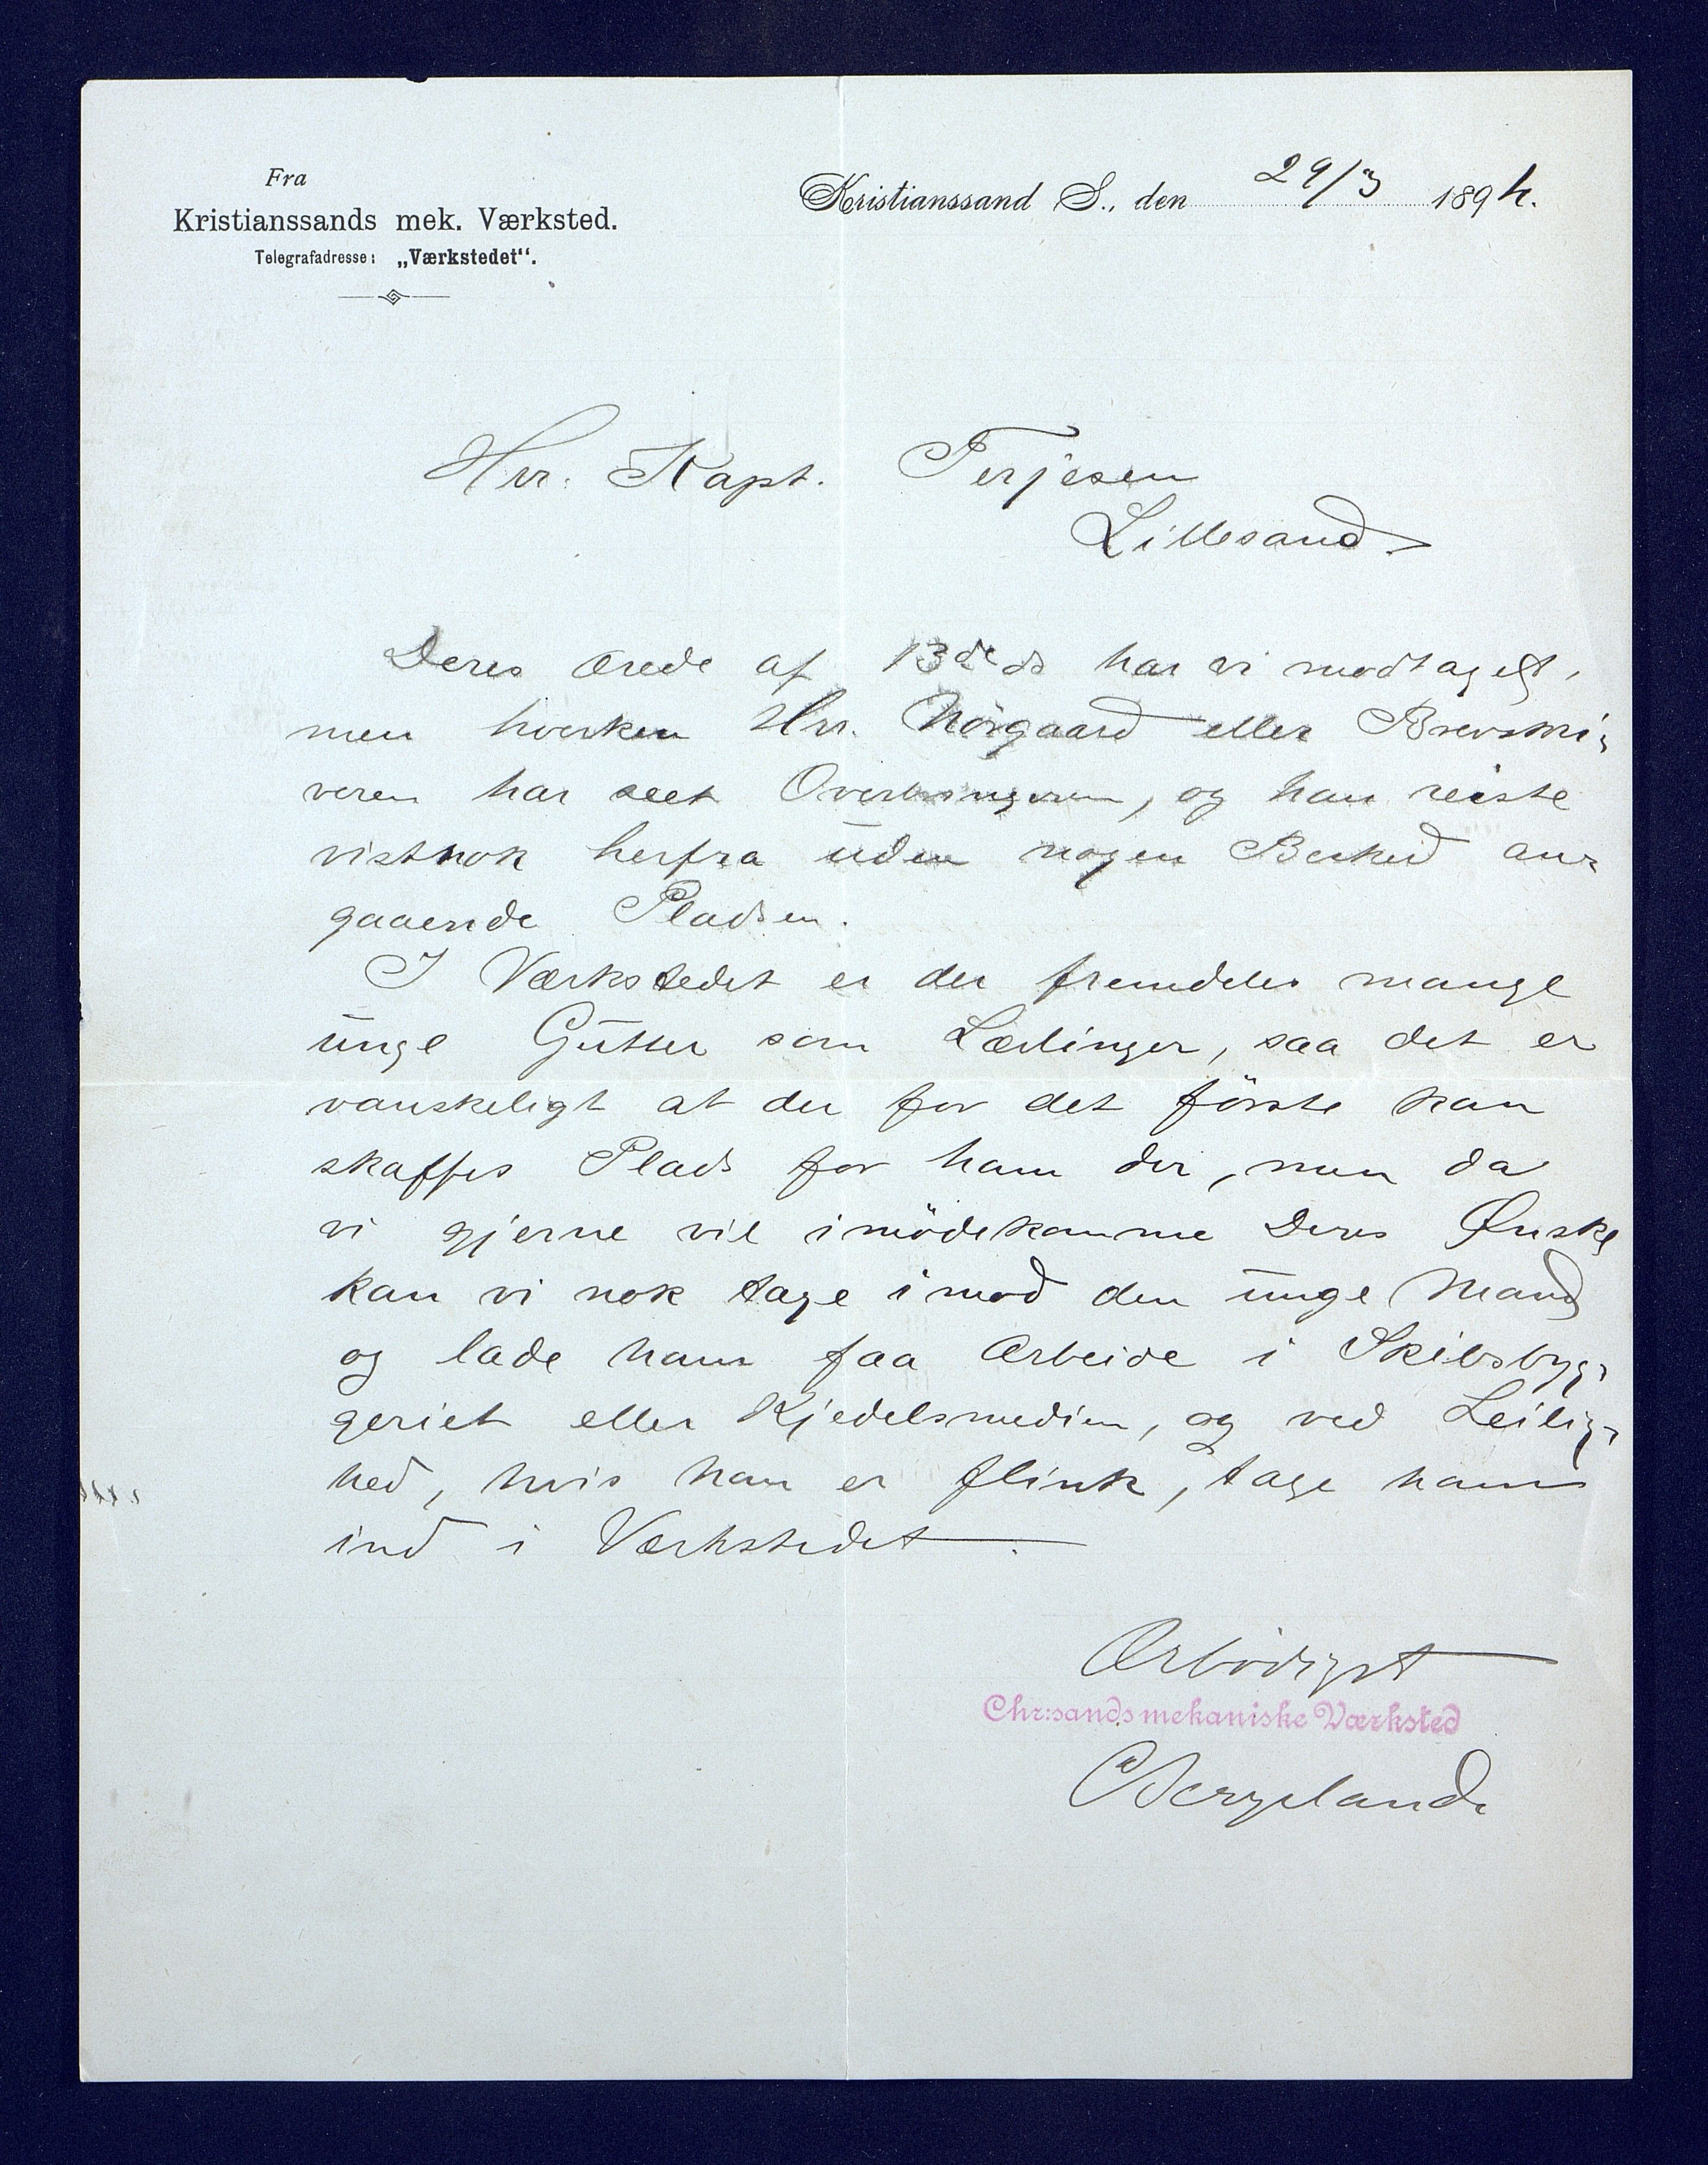 Fra
Kristianssands mek. Værksted.
Telegrafadresse: „Værkstedet“.
Kristianssand S., den 29/3 1894.
Hrr. Kapt. Terjesen
Lillesand
Deres ærede af 13de ds har vi modtaget,
men hverken Hrr. Nörgaard eller Brevskri-
veren har seet Overbringeren, og han reiste
vistnok herfra uden nogen Besked an-
gaaende Pladsen.
I Værkstedet er der fremdeles mange
unge Gutter som Lærlinger, saa det er
vanskeligt at der for det förste kan
skaffes Plads for ham der, men da
vi gjerne vil imödekomme Deres Ønske
kan vi nok tage imod den unge Mand
og lade ham faa Arbeide i Skibsbyg-
geriet eller Kjedelsmedien, og ved Leilig-
hed, hvis han er flink, tage ham
ind i Værkstedet.
Ærbödigst
Chr:sands mekaniske Værksted
C Bergeland